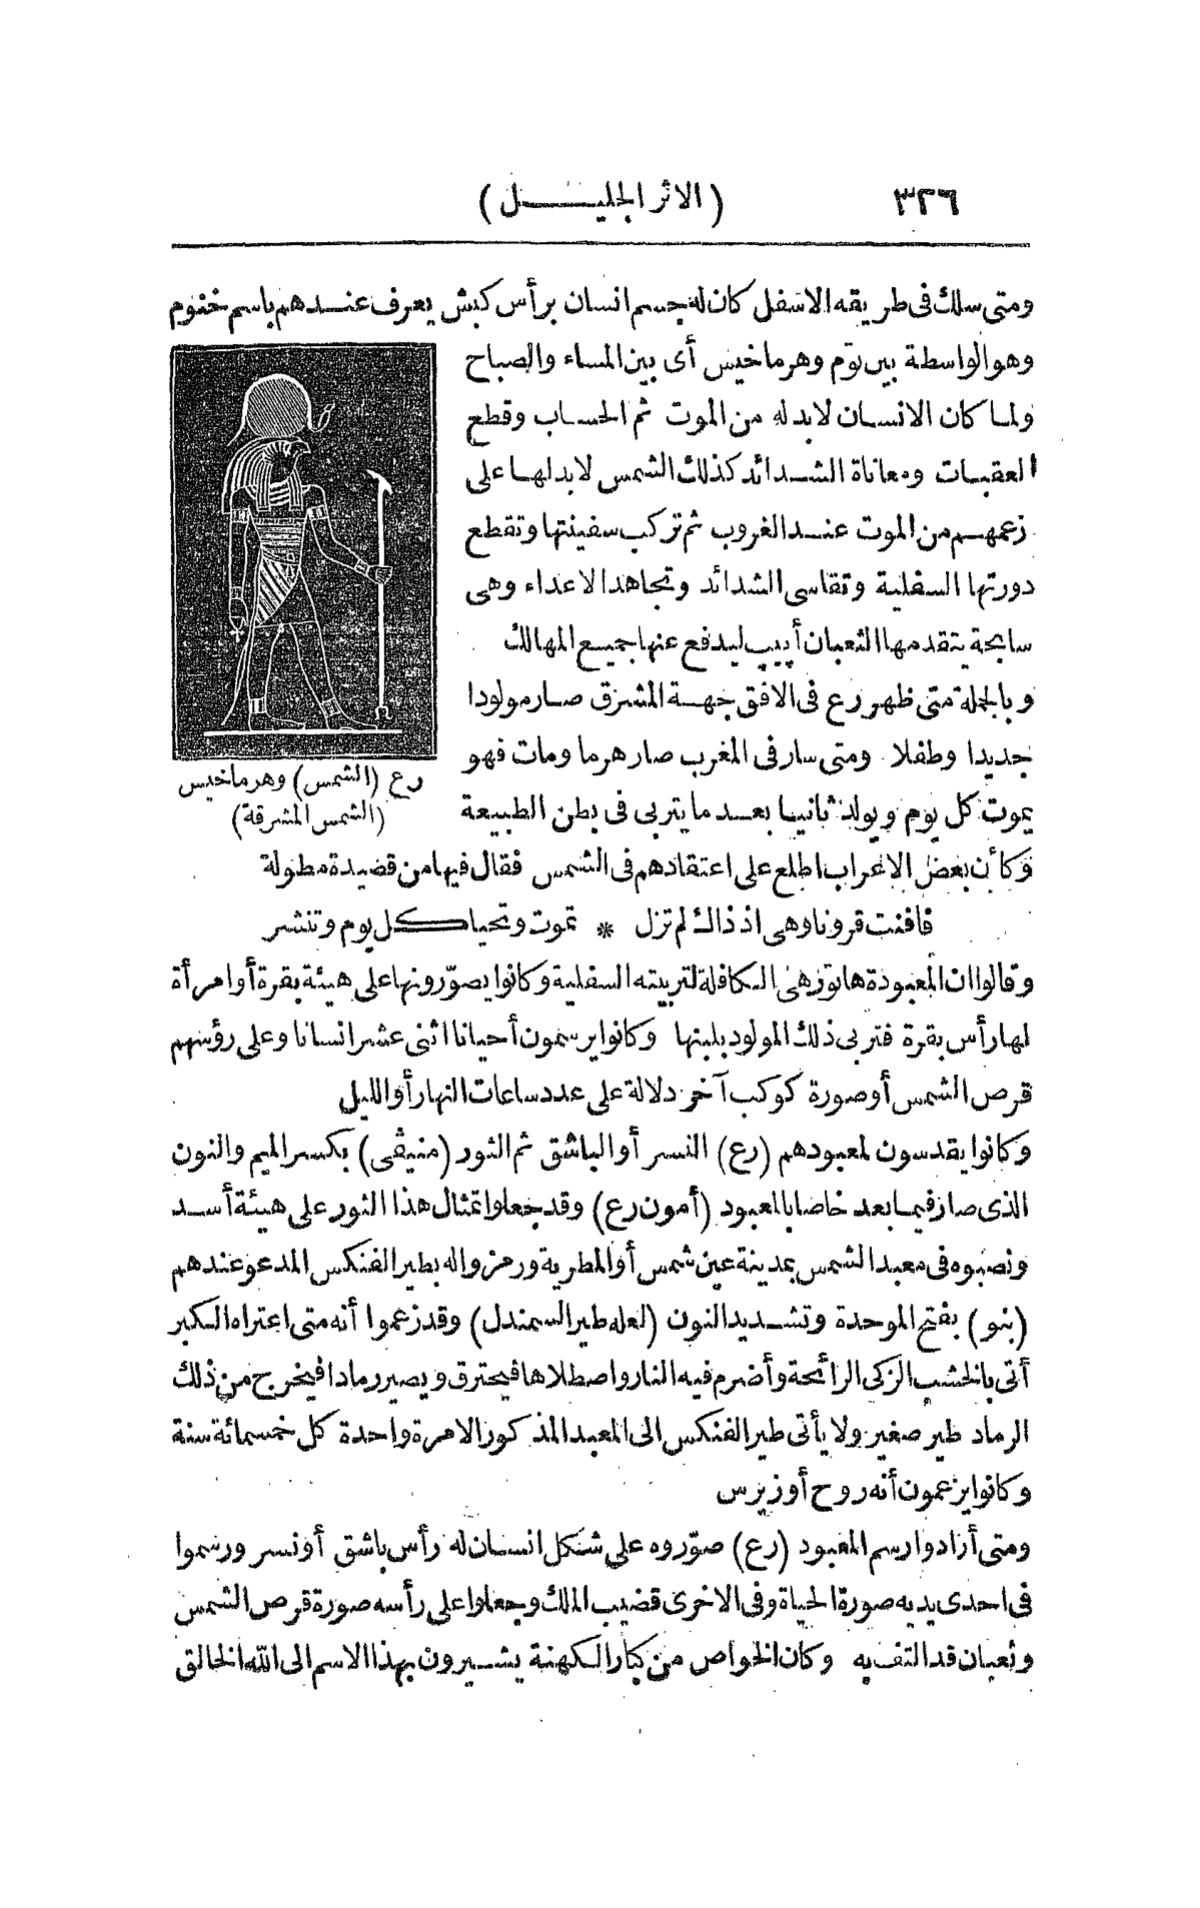 ٣٢٦
(الاثر الجليل)
ومتى سلك فى طريقه الاسفل كان له جسم انسان برأس كبش يعرف عندهم باسم خنوم
وهو الواسطة بين توم وهرماخيس أى بين المساء والصباح
ولما كان الانسان لابد له من الموت ثم الحساب وقطع
العقبات ومعاناة الشدائد كذلك الشمس لابد لها على
زعمهم من الموت عند الغروب ثم تركب سفينتها وتقطع
دورتها السفلية وتقاسى الشدائد وتجاهد الاعداء وهى
سابحة يتقدمها الثعبان أپيپ ليدفع عنها جميع المهالك
وبالجملة متى ظهر رع فى الافق جهة المشرق صار مولودا
جديدا وطفلا ومتى سار فى المغرب صار هرما ومات فهو
يموت كل يوم ويولد ثانيا بعد ما يتربى فى بطن الطبيعة
رع (الشمس) وهرماخيس
(الشمس المشرقة)
وكأن بعض الاعراب اطلع على اعتقادهم فى الشمس فقال فيها من قصيدة مطولة
فافنت قرونا وهى اذ ذاك لم تزل * تموت وتحيا كل يوم وتنشر
وقالوا ان المعبودة هاتور هى الكافلة لتربيته السفلية وكانوا يصوّرونها على هيئة بقرة أو امرأة
لها رأس بقرة فتربى ذلك المولود بلبنها وكانوا يرسمون أحيانا اثنى عشر انسانا وعلى رؤسهم
قرص الشمس أو صورة كوكب آخر دلالة على عدد ساعات النهار أو الليل
وكانوا يقدسون لمعبودهم (رع) النسر أو الباشق ثم الثور (منيڤى) بكسر الميم والنون
الذى صار فيما بعد خاصا بالمعبود (أمون رع) وقد جعلوا تمثال هذا الثور على هيئة أسد
ونصبوه فى معبد الشمس بمدينة عين شمس أو المطرية ورمزوا له بطير الفنكس المدعو عندهم
(بنو) بفتح الموحدة وتشديد النون (لعله طير السمندل) وقد زعموا أنه متى اعتراه الكبر
أتى بالخشب الزكى الرائحة وأضرم فيه النار واصطلاها فيحترق ويصير رمادا فيخرج من ذلك
الرماد طير صغير ولا يأتى طير الفنكس الى المعبد المذكور الا مرة واحدة كل خمسمائة سنة
وكانوا يزعمون أنه روح أوزيرس
ومتى أرادوا رسم المعبود (رع) صوّروه على شكل انسان له رأس باشق أو نسر ورسموا
فى احدى يديه صورة الحياة وفى الاخرى قضيب الملك وجعلوا على رأسه صورة قرص الشمس
وثعبان قد التف به وكان الخواص من كبار الكهنة يشيرون بهذا الاسم الى الله الخالق